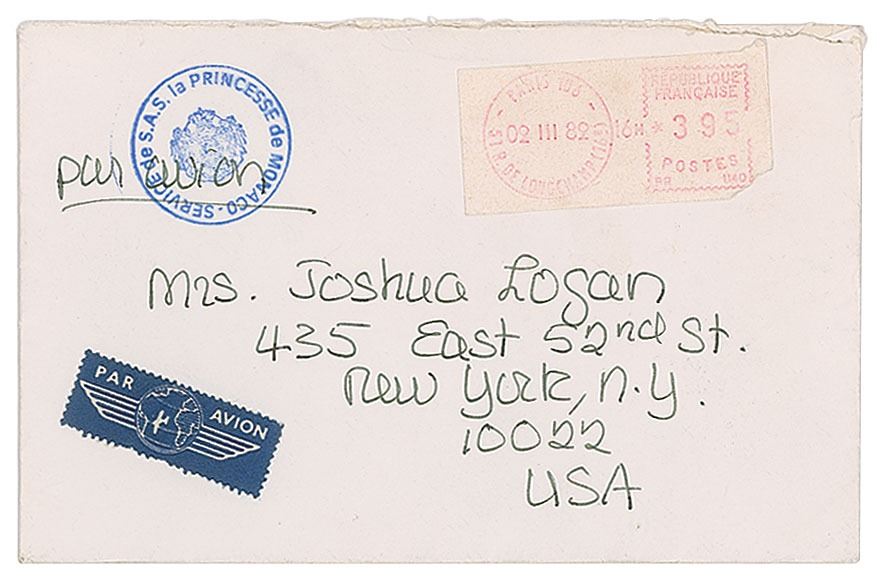 SERVICE de S.A.S. la PRINCESSE de MONACO -
par avion
- PARIS 106 -
51 R. DE LONGCHAMP (16E)
02 III 82 16H
RÉPUBLIQUE
FRANÇAISE
* 3 9 5
POSTES
Mrs. Joshua Logan
435 East 52nd St.
New York, N.Y.
10022
USA
PAR AVION